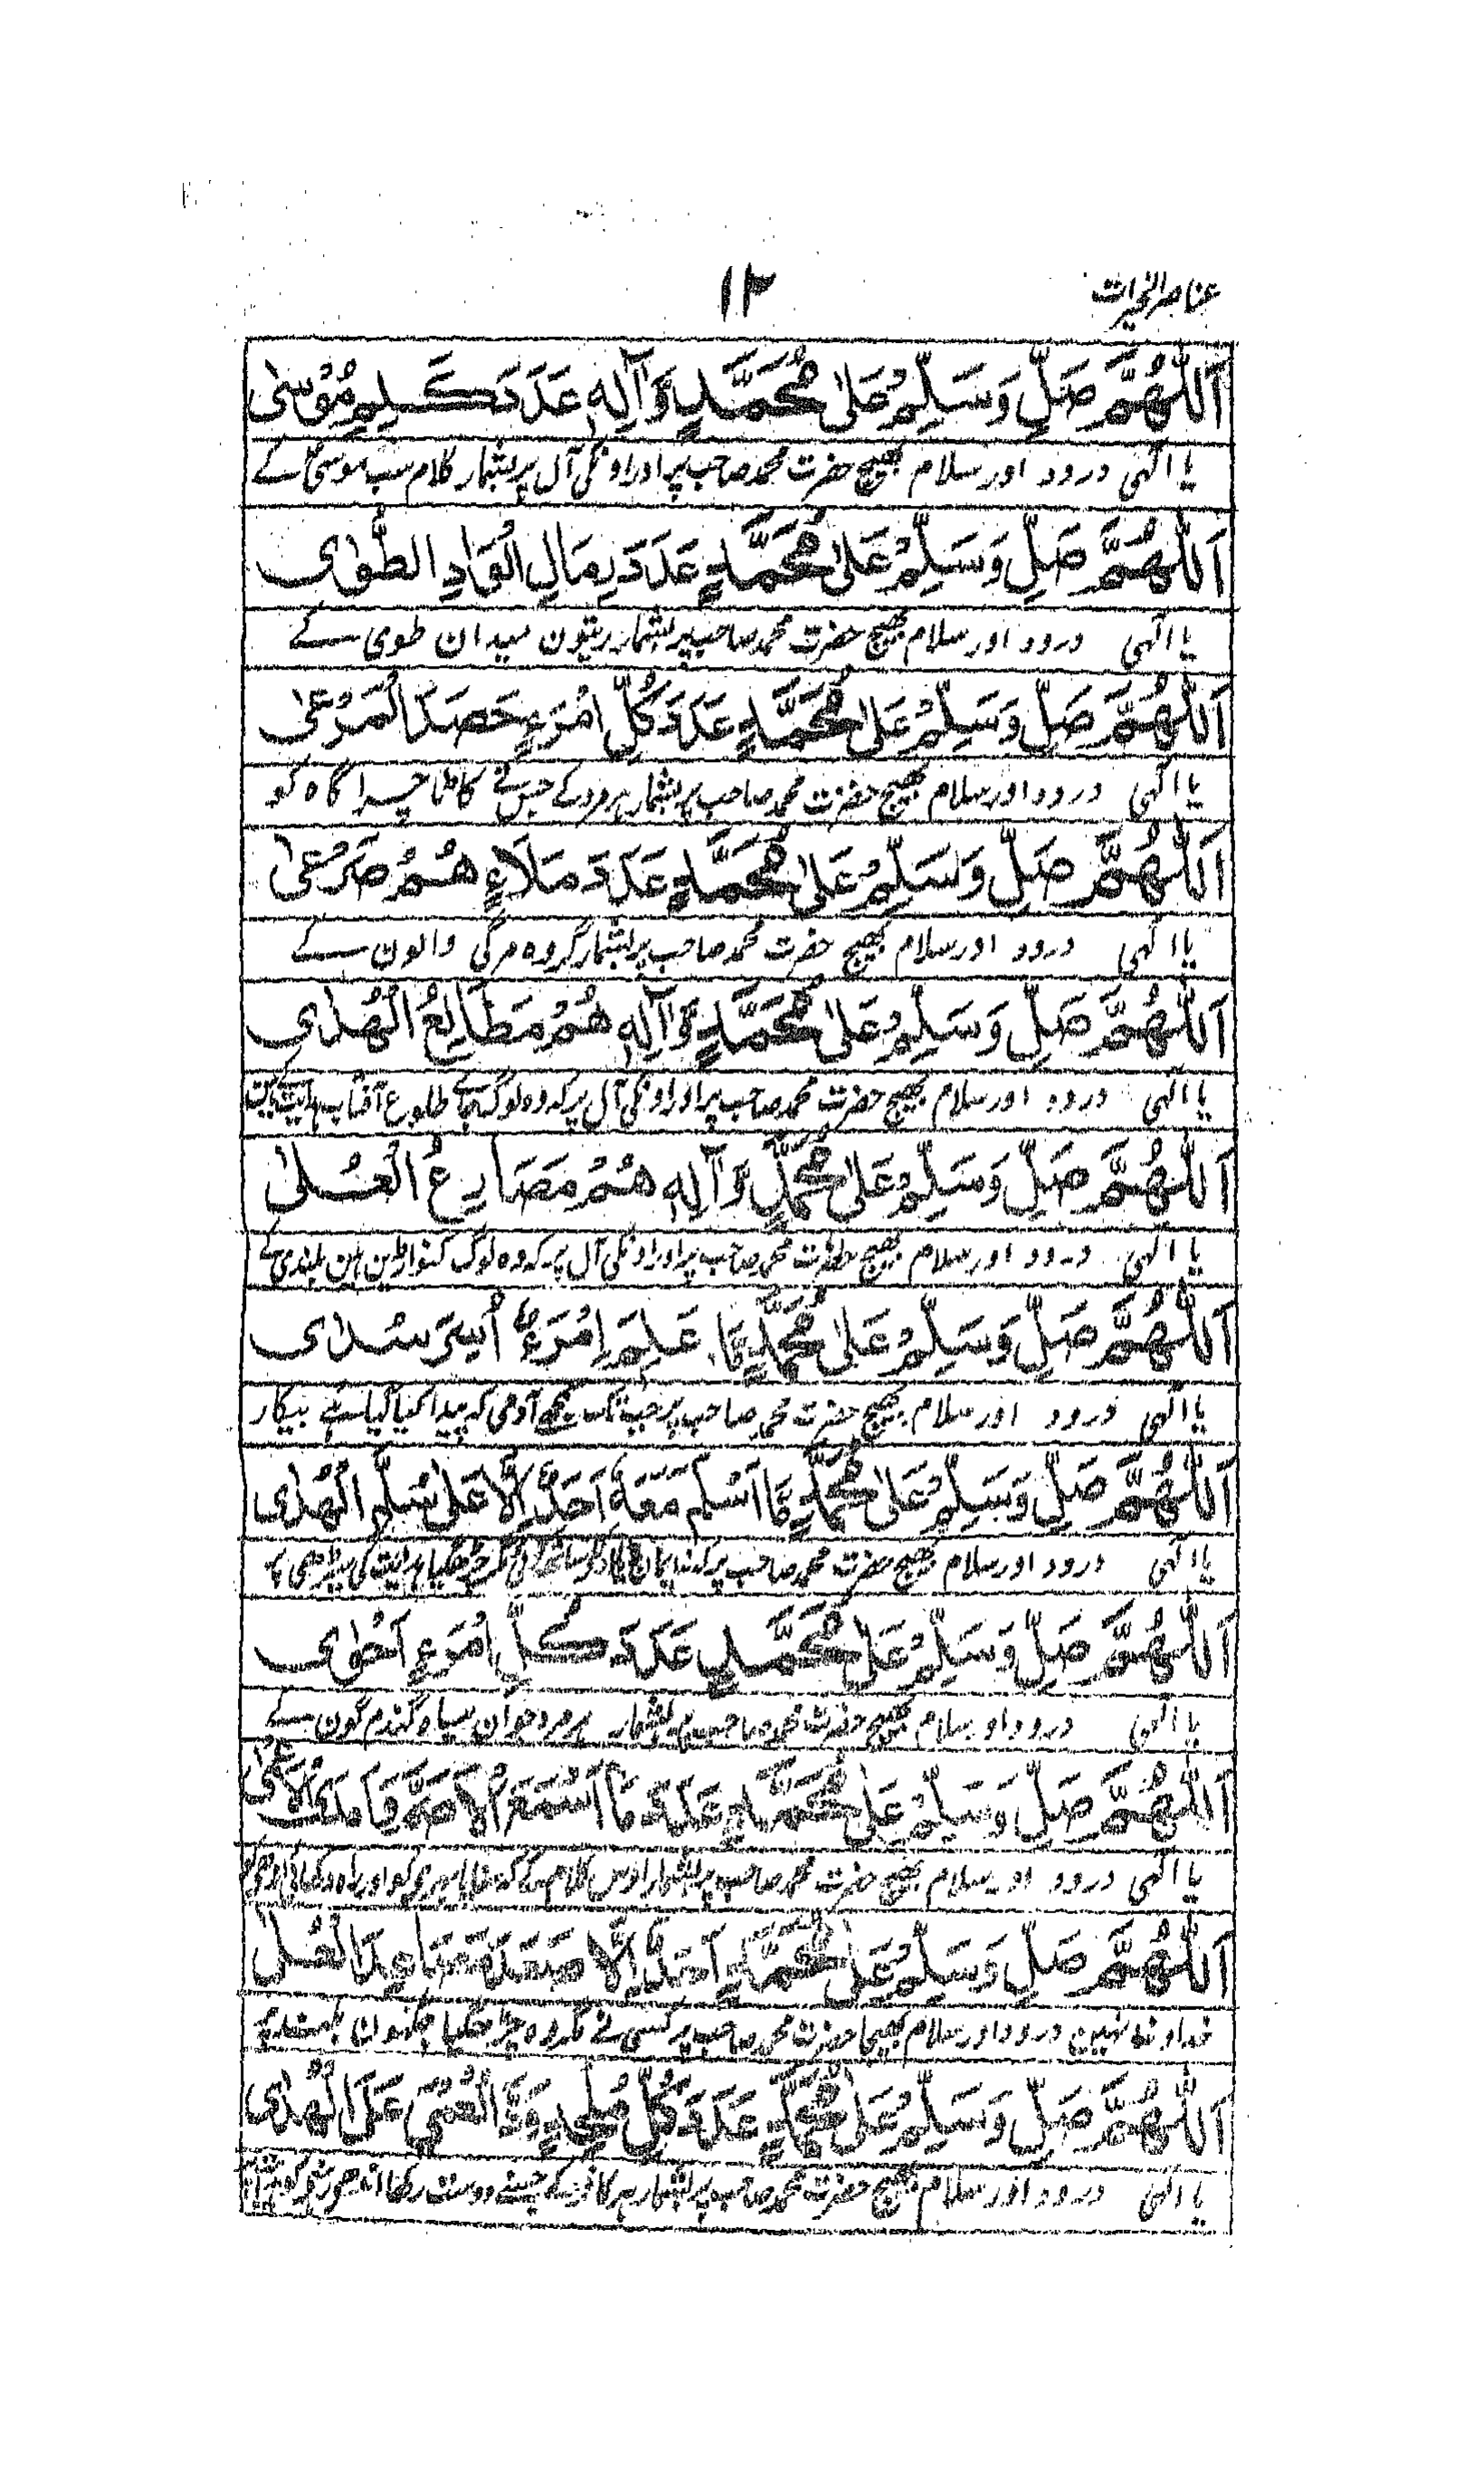 عناصر الخیرات
۱۲
اَللّٰهُمَّ صَلِّ وَسَلِّمْ عَلىٰ مُحَمَّدٍ وَّآلِهٖ عَدَدَ كَلِيمِ مُوْسٰى
یا الٰہی درود اور سلام بھیج حضرت محمد صاحب پر اور اونکی آل پر بشمار کلام سب موسیٰ کے
اَللّٰهُمَّ صَلِّ وَسَلِّمْ عَلىٰ مُحَمَّدٍ عَدَدَ رِمَالِ الْوَادِ الطُّوٰى
یا الٰہی درود اور سلام بھیج حضرت محمد صاحب پر بشمار ریتون میدان طوی کے
اَللّٰهُمَّ صَلِّ وَسَلِّمْ عَلىٰ مُحَمَّدٍ عَدَدَ كُلِّ امْرَءٍ حَصَدَ الْمَرْعىٰ
یا الٰہی درود اور سلام بھیج حضرت محمد صاحب پر بشمار ہر مرد کے جس نے کاٹا چراگاہ کو
اَللّٰهُمَّ صَلِّ وَسَلِّمْ عَلىٰ مُحَمَّدٍ عَدَدَ مَلَاءٍ هُمْ صَرْعىٰ
یا الٰہی درود اور سلام بھیج حضرت محمد صاحب پر بشمار گروہ مرگی والون کے
اَللّٰهُمَّ صَلِّ وَسَلِّمْ عَلىٰ مُحَمَّدٍ وَّآلِهٖ هُمْ مَطَالِعُ الْهُدٰى
یا الٰہی درود اور سلام بھیج حضرت محمد صاحب پر اور اونکی آل پر کہ وہ لوگ جائے طلوع آفتاب ہدایت کے ہین
اَللّٰهُمَّ صَلِّ وَسَلِّمْ عَلىٰ مُحَمَّدٍ وَّآلِهٖ هُمْ مَصَارِعُ الْعُلىٰ
یا الٰہی درود اور سلام بھیج حضرت محمد صاحب پر اور اونکی آل پر کہ وہ لوگ کنواڑین ہین بلندی کے
اَللّٰهُمَّ صَلِّ وَسَلِّمْ عَلىٰ مُحَمَّدٍ مَّا عَلِمَ اِمْرَءٌ اُسِرَ سُدٰى
یا الٰہی درود اور سلام بھیج حضرت محمد صاحب پر جب تک سمجھے آدمی کہ پیدا کیا گیا ہے بیکار
اَللّٰهُمَّ صَلِّ وَسَلِّمْ عَلىٰ مُحَمَّدٍ مَّا اَسْلَمَ مَعَهٗ اَحَدٌ اِلَّا عَلىٰ سُلَّمِ الْهُدٰى
یا الٰہی درود اور سلام بھیج حضرت محمد صاحب پر کہ نہ ایمان لایا اونکے ساتھ کوئی مگر چڑھ گیا ہدایت کی سیڑھی پر
اَللّٰهُمَّ صَلِّ وَسَلِّمْ عَلىٰ مُحَمَّدٍ عَدَدَ كُلِّ امْرَءٍ اَحْوٰى
یا الٰہی درود اور سلام بھیج حضرت محمد صاحب پر بشمار ہر مرد جوان سیاہ گندم گون کے
اَللّٰهُمَّ صَلِّ وَسَلِّمْ عَلىٰ مُحَمَّدٍ عَدَدَ مَا اَسْمَعَ الْاَصَمَّ وَمَا هَدَى الْاَعْمىٰ
یا الٰہی درود اور سلام بھیج حضرت محمد صاحب پر بشمار اوس کلام کے کہ سنایا بہرے کو اور راہ دکھائی
اَللّٰهُمَّ صَلِّ وَسَلِّمْ عَلىٰ مُحَمَّدٍ اَحَدٌ اِلَّا صَعَدَ مَصَاعِدَ الْعُلىٰ
خداوندا نہین درود اور سلام بھیجا حضرت محمد صاحب پر کسی نے مگر وہ چڑھ گیا جگہون بلند پر
اَللّٰهُمَّ صَلِّ وَسَلِّمْ عَلىٰ مُحَمَّدٍ عَدَدَ كُلِّ مُلْحِدٍ وَدَّ الْعُمْىَ عَلَى الْهُدٰى
یا الٰہی درود اور سلام بھیج حضرت محمد صاحب پر بشمار ہر کافر کے جسنے دوست رکھا